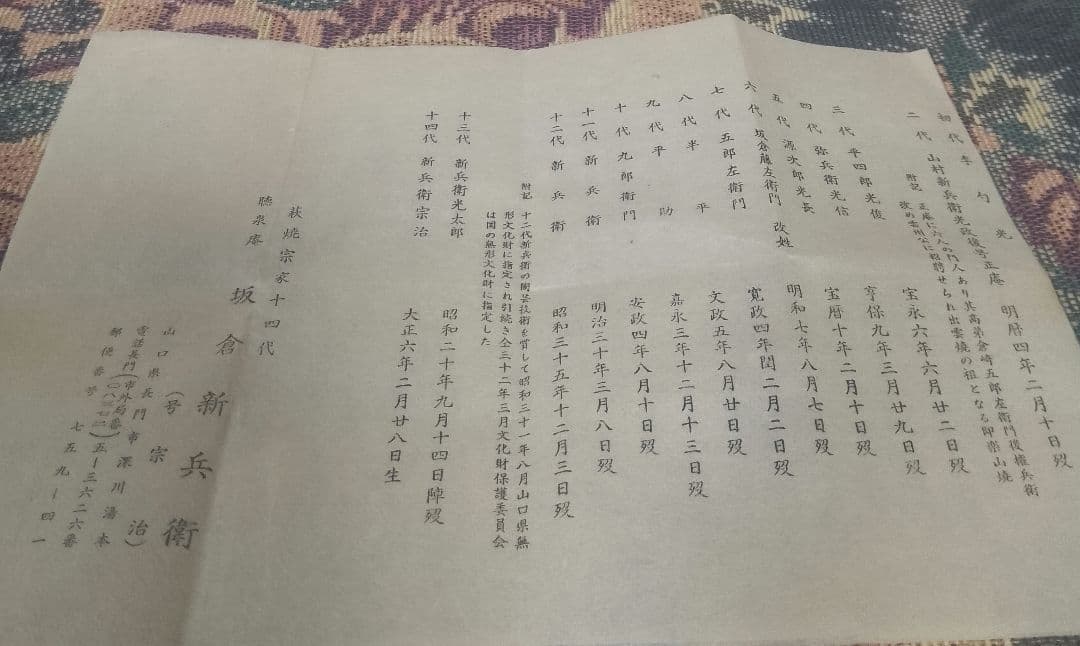 初代 李勺光 明暦四年二月十日歿
二代 山村新兵衛光政後号正庵
附記 正庵に六人の門人あり其高弟倉崎五郎左衛門後権兵衛
改め雲州公に招聘せられ出雲焼の祖となる即楽山焼
三代 平四郎光俊 宝永六年六月廿二日歿
四代 弥兵衛光信 亨保九年三月廿九日歿
五代 源次郎光長 宝暦十年二月十日歿
六代 坂倉藤左衛門 改姓 明和七年八月七日歿
七代 五郎左衛門 寛政四年閏二月二日歿
八代 半平 文政五年八月廿日歿
九代 平助 嘉永三年十二月十三日歿
十代 九郎衛門 安政四年八月十日歿
十一代 新兵衛 明治三十年三月八日歿
十二代 新兵衛 昭和三十五年十二月三日歿
附記 十二代新兵衛の陶芸技術を賞して昭和三十一年八月山口県無
形文化財に指定され引続き仝三十二年三月文化財保護委員会
は国の無形文化財に指定した
十三代 新兵衛光太郎 昭和二十年九月十四日陣歿
十四代 新兵衛宗治 大正六年二月廿八日生
萩焼宗家十四代
聴泉庵 坂倉新兵衛
(号 宗治)
山口県長門市深川湯本
電話長門(市外局番)五ー三六二六番
郵便番号 七五九ー四一